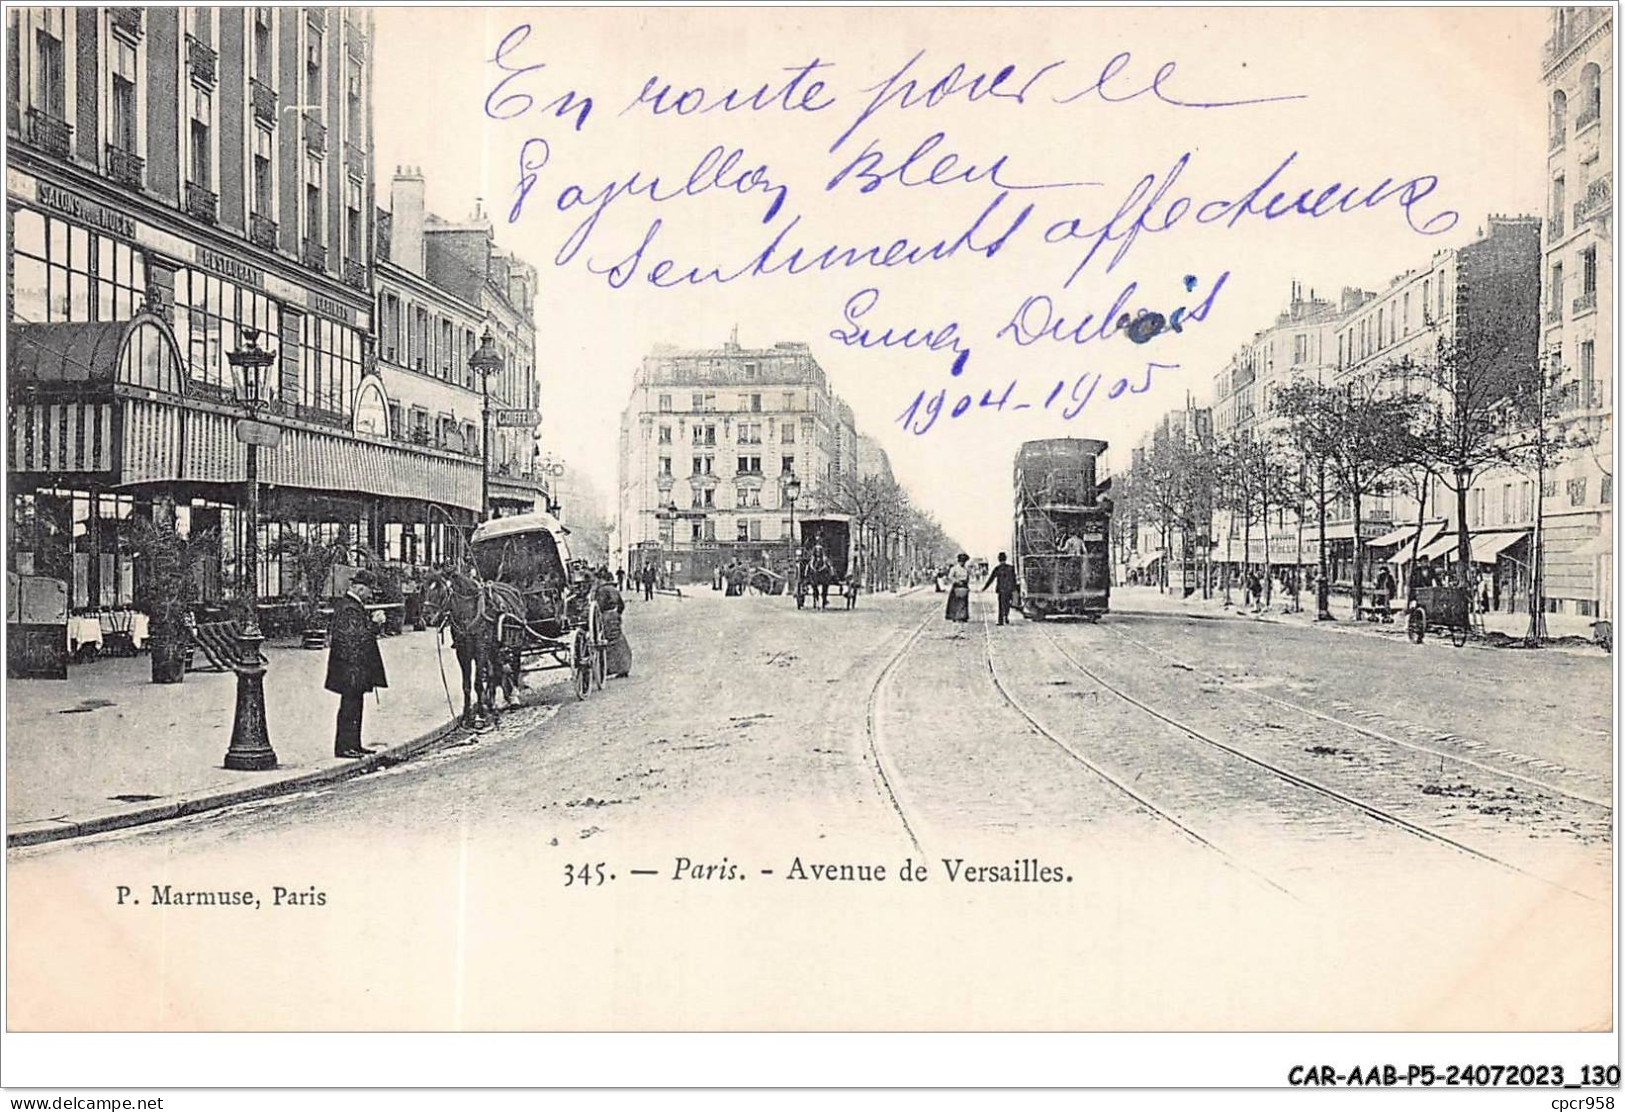 En route pour le
Papillon Bleu
Sentiments affectueux
Dubois
1904-1905
SALONS POUR NOCES
RESTAURANT
COIFFEUR
345. — Paris. - Avenue de Versailles.
P. Marmuse, Paris
CAR-AAB-P5-24072023_130
delcampe.net
cpcr958